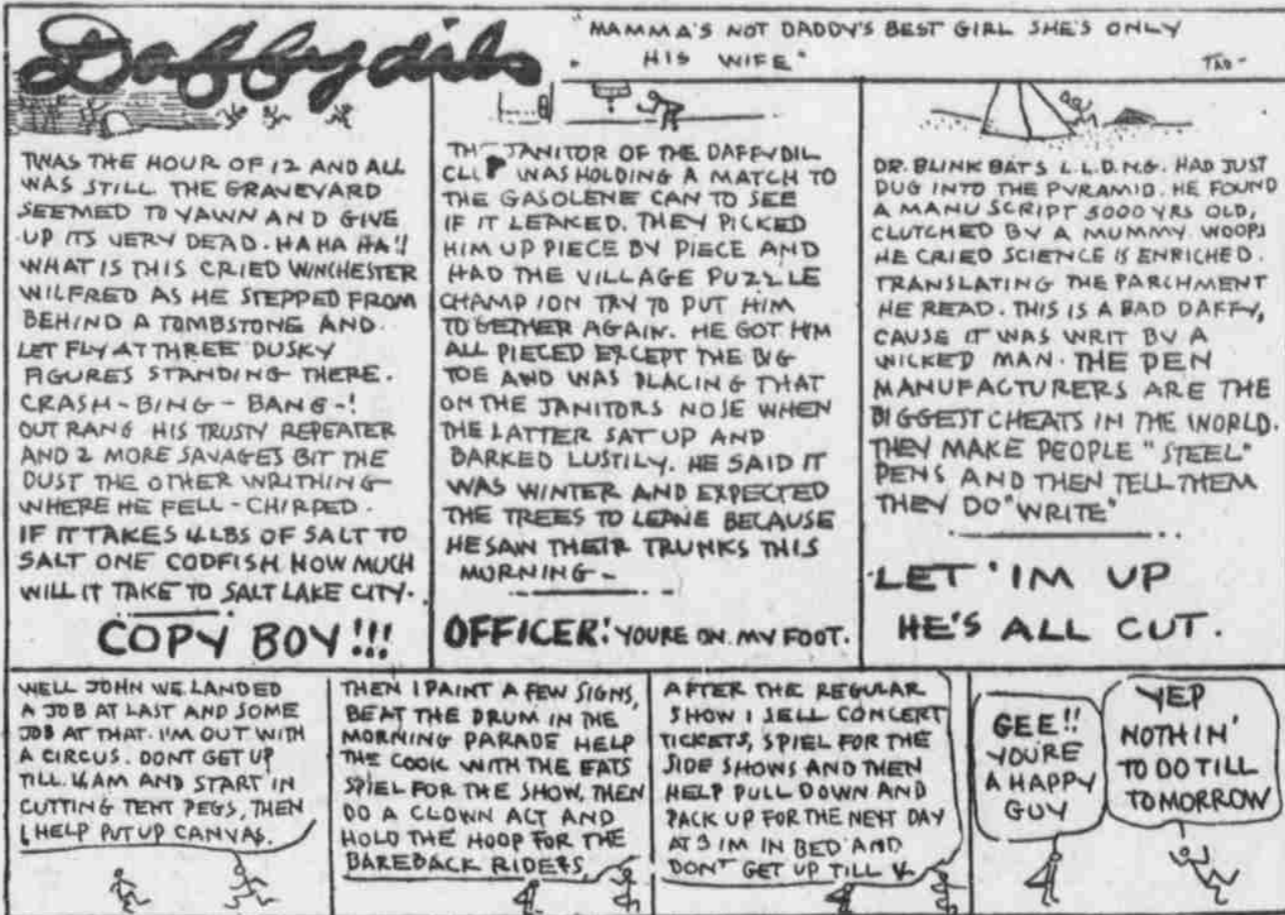 Daffydils
"MAMMA'S NOT DADDY'S BEST GIRL SHE'S ONLY
HIS WIFE"
TAD-
TWAS THE HOUR OF 12 AND ALL
WAS STILL THE GRAVEYARD
SEEMED TO YAWN AND GIVE
UP ITS VERY DEAD. HA HA HA!!
WHAT IS THIS CRIED WINCHESTER
WILFRED AS HE STEPPED FROM
BEHIND A TOMBSTONE AND
LET FLY AT THREE DUSKY
FIGURES STANDING THERE.
CRASH-BING-BANG-!
OUT RANG HIS TRUSTY REPEATER
AND 2 MORE SAVAGES BIT THE
DUST THE OTHER WRITHING
WHERE HE FELL-CHIRPED.
IF IT TAKES 4LBS OF SALT TO
SALT ONE CODFISH HOW MUCH
WILL IT TAKE TO SALT LAKE CITY.
COPY BOY!!!
THE JANITOR OF THE DAFFYDIL
WAS HOLDING A MATCH TO
THE GASOLENE CAN TO SEE
IF IT LEAKED. THEY PICKED
HIM UP PIECE BY PIECE AND
HAD THE VILLAGE PUZZLE
CHAMPION TRY TO PUT HIM
TOGETHER AGAIN. HE GOT HIM
ALL PIECED EXCEPT THE BIG
TOE AND WAS PLACING THAT
ON THE JANITORS NOSE WHEN
THE LATTER SAT UP AND
BARKED LUSTILY. HE SAID IT
WAS WINTER AND EXPECTED
THE TREES TO LEAVE BECAUSE
HE SAW THEIR TRUNKS THIS
MORNING-
OFFICER! YOURE ON MY FOOT.
DR. BLINK BATS L.L.D.N.G. HAD JUST
DUG INTO THE PYRAMID. HE FOUND
A MANUSCRIPT 5000 YRS OLD,
CLUTCHED BY A MUMMY. WOOPS
HE CRIED SCIENCE IS ENRICHED.
TRANSLATING THE PARCHMENT
HE READ. THIS IS A BAD DAFFY,
CAUSE IT WAS WRIT BY A
WICKED MAN. THE PEN
MANUFACTURERS ARE THE
BIGGEST CHEATS IN THE WORLD.
THEY MAKE PEOPLE "STEEL"
PENS AND THEN TELL THEM
THEY DO "WRITE"
LET 'IM UP
HE'S ALL CUT.
WELL JOHN WE LANDED
A JOB AT LAST AND SOME
JOB AT THAT. I'M OUT WITH
A CIRCUS. DONT GET UP
TILL 4AM AND START IN
CUTTING TENT PEGS, THEN
I HELP PUT UP CANVAS.
THEN I PAINT A FEW SIGNS,
BEAT THE DRUM IN THE
MORNING PARADE HELP
THE COOK WITH THE EATS
SPIEL FOR THE SHOW, THEN
DO A CLOWN ACT AND
HOLD THE HOOP FOR THE
BAREBACK RIDERS,
AFTER THE REGULAR
SHOW I SELL CONCERT
TICKETS, SPIEL FOR THE
SIDE SHOWS AND THEN
HELP PULL DOWN AND
PACK UP FOR THE NEXT DAY
AT 3 IM IN BED AND
DONT GET UP TILL 4
GEE!!
YOU'RE
A HAPPY
GUY
YEP
NOTHIN'
TO DO TILL
TOMORROW